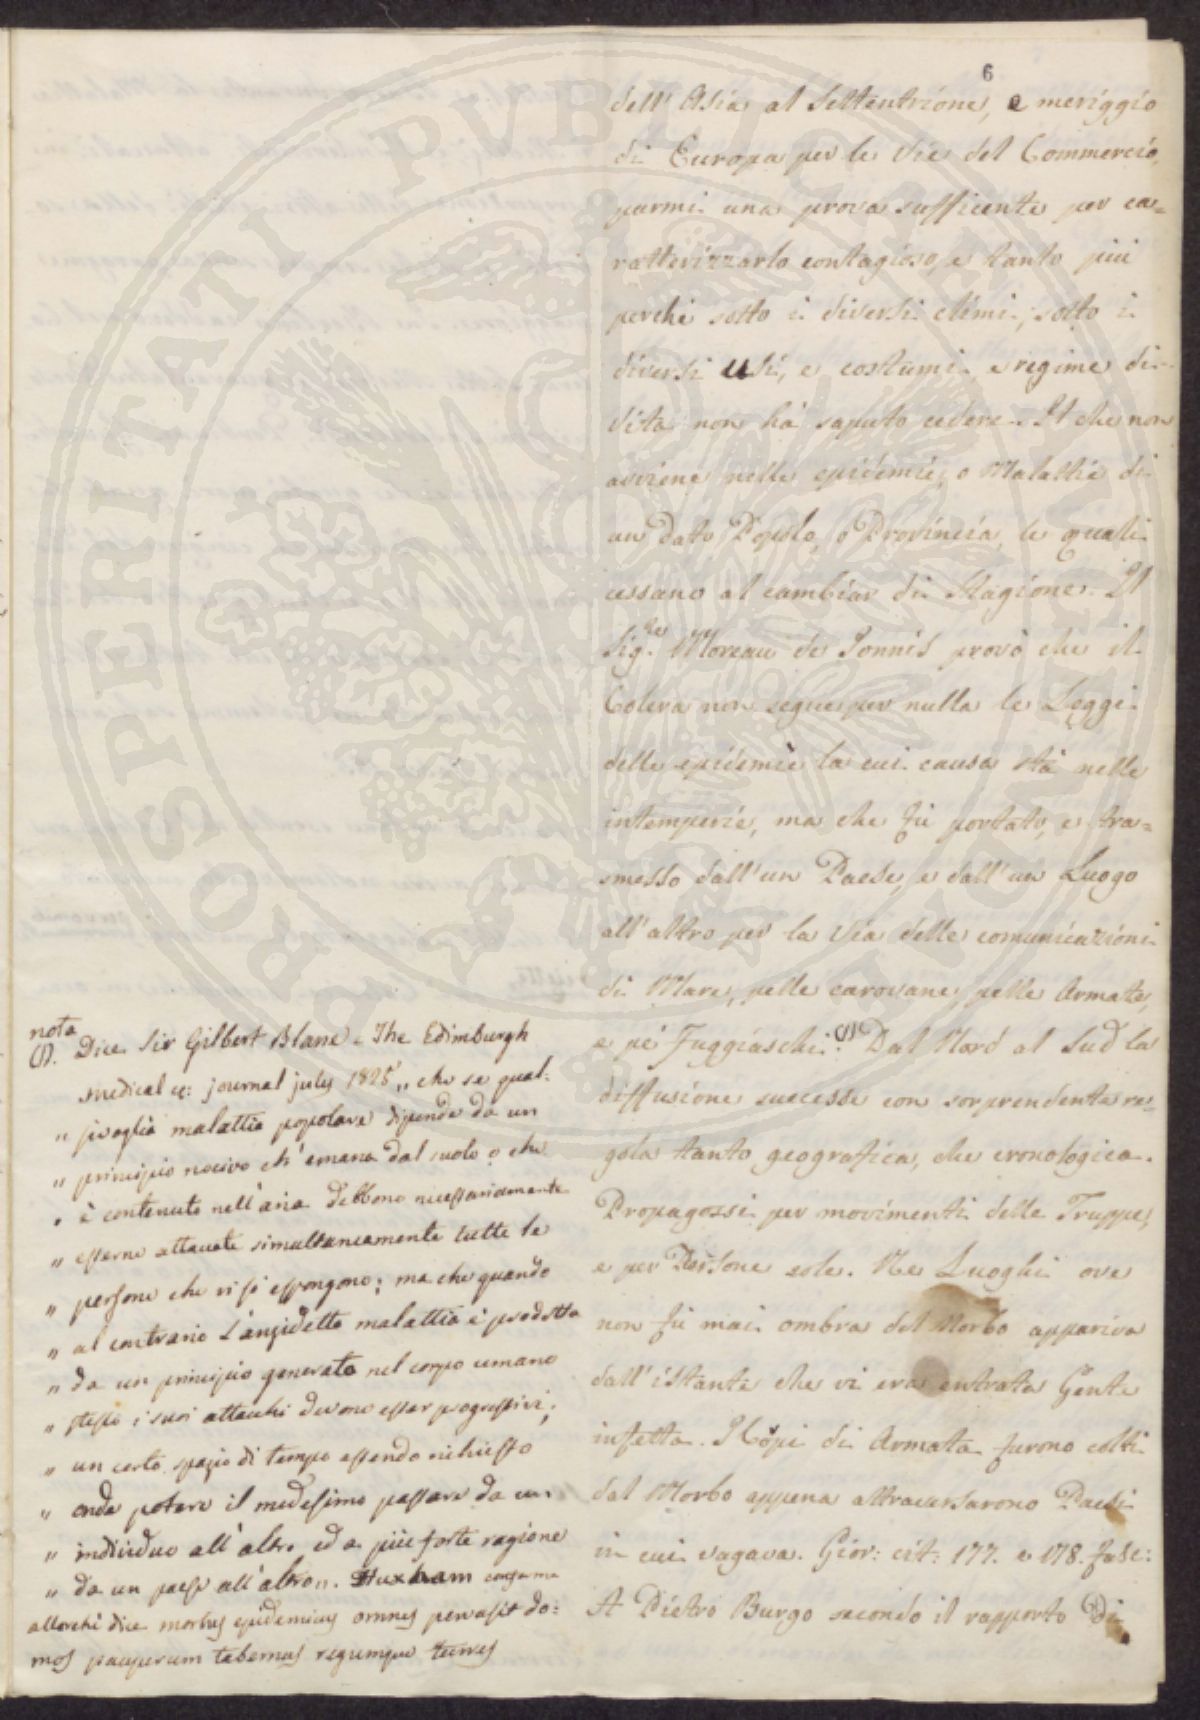 6
dell' Asia al Settentrione, e meriggio
di Europa per le vie del Commercio,
parmi una prova sufficente per ca=
ratterizzarlo contagioso, e tanto più
perchè sotto i diversi climi, sotto i
diversi usi, e costumi, e regime di-
vita non hà saputo cedere. Il che non
avviene nelle epidemie, o Malattie di
un dato Popolo, o Provincia, le quali
cessano al cambiar di Stagione. Il
Sig.re Moreau de Jonnès provò che il
Colera non segue per nulla le Leggi
delle epidemie la cui causa stà nelle
intemperie, ma che fù portato, e tra=
smesso dall'un Paese, e dall'un Luogo
all'altro per la via delle comunicazioni
di Mare, pelle carovane, pelle Armate,
e pè Fuggiaschi. (1) Dal Nord al Sud la
diffusione successe con sorprendente re=
gola tanto geografica, che cronologica.
Propagossi per movimenti delle Truppe,
e per Persone sole. Ne Luoghi ove
non fù mai ombra del Morbo appariva
dall'istante che vi era entrata Gente
infetta. I Corpi di Armata furono colti
dal Morbo appena attraversarono Paesi
in cui vagava. Gior: cit: 177. e 178. fasc:
A Pietro Burgo secondo il rapporto di
nota
(1). Dice Sir Gilbert Blane = The Edimburgh
medical &: journal july 1825 „ che se qual:
„ sivoglia malattia popolare dipende da un
„ principio nocivo ch'emana dal suolo o che
„ è contenuto nell'aria debbono necessariamente
„ esserne attaccate simultaneamente tutte le
„ persone che vi si espongono; ma che quando
„ al contrario l'anzidetta malattia è prodotta
„ da un principio generato nel corpo umano
„ stesso i suoi attacchi devono esser progressivi;
„ un certo spazio di tempo essendo richiesto
„ onde potere il medesimo passare da un
„ individuo all'altro ed a più forte ragione
„ da un paese all'altro „. Huxham conferma
allorchè dice morbus epidemicus omnes pervasit do:
mos pauperum tabernas regumque turres
PROSPERITATI PVBLICAE